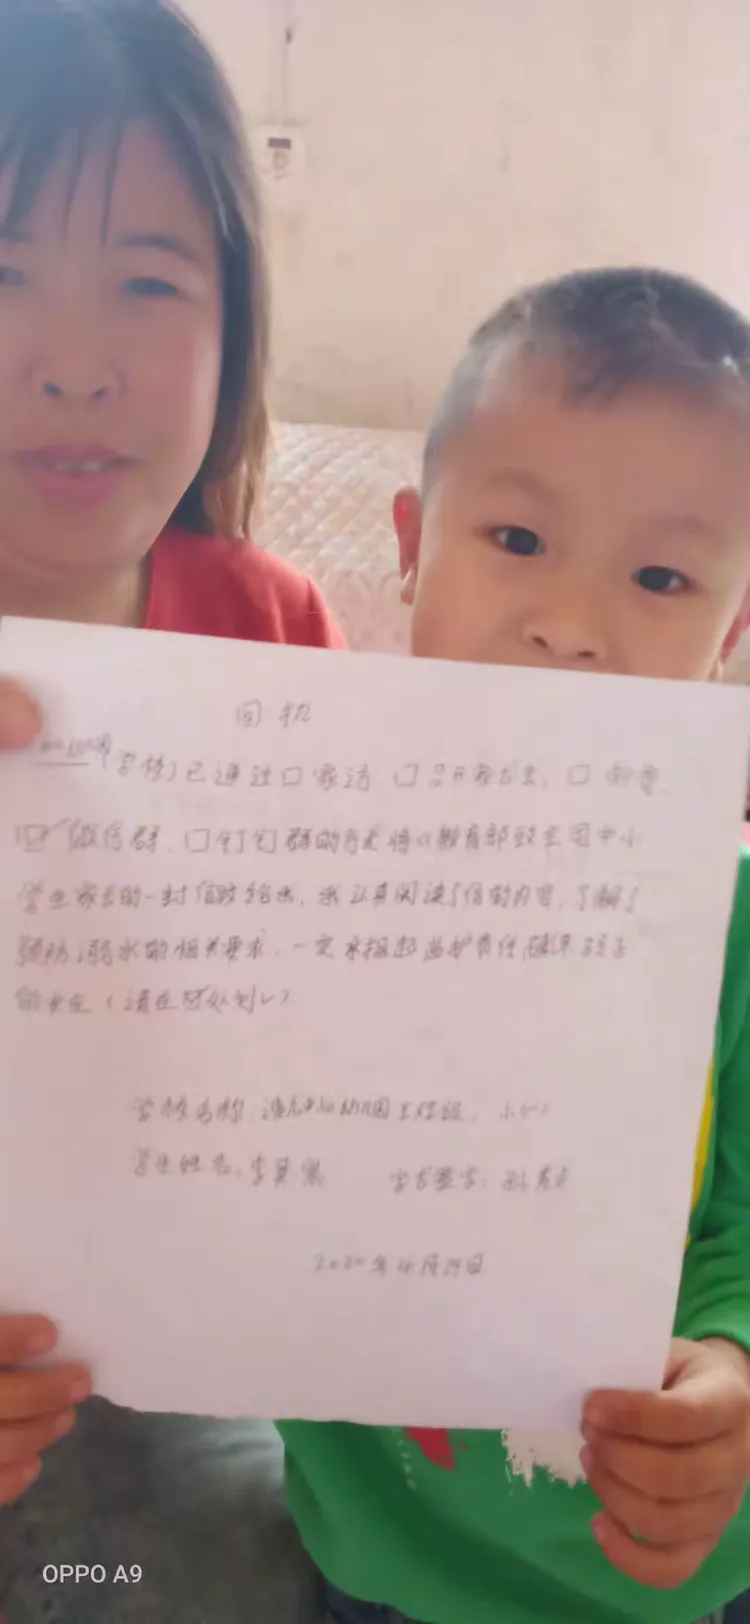 回执
(学校)已通过口家访 口召开家长会、口
微信群、口钉钉群的方式将《教育部致全国中小
学生家长的一封信》发给我,我认真阅读了信的内容,了解了
预防溺水的相关要求,一定承担起监护责任,确保孩子
的安全(请在 处划✓)
学校名称 幼儿园
学生姓名:李 家长签字:
2020年4月29日
OPPO A9